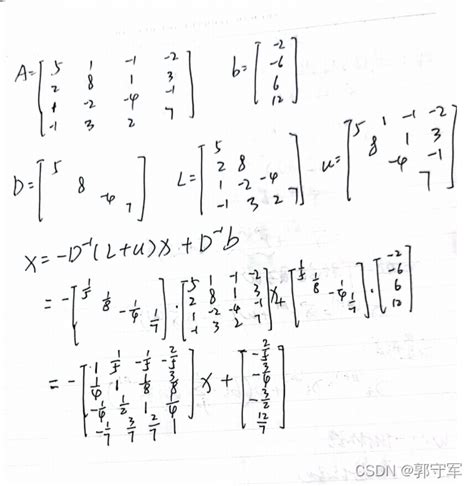 A= [ 5 1 -1 -2
2 8 1 3
1 -2 -4 -1
-1 3 2 7 ]
b= [ -2
-6
6
12 ]
D= [ 5
8
-4
7 ]
L= [ 5
2 8
1 -2 -4
-1 3 2 7 ]
u= [ 5 1 -1 -2
8 1 3
-4 -1
7 ]
x = -D⁻¹(L+u)x + D⁻¹b
= - [ 1/5 1/8 -1/4 1/7 ] · [ 5 1 -1 -2
2 8 1 3
1 -2 -4 -1
-1 3 2 7 ] x + [ 1/5 1/8 -1/4 1/7 ] · [ -2
-6
6
12 ]
= - [ 1 1/5 -1/5 -2/5
1/4 1 1/8 3/8
-1/4 1/2 1 1/4
-1/7 3/7 2/7 1 ] x + [ -2/5
-3/4
-3/2
12/7 ]
CSDN @郭守军